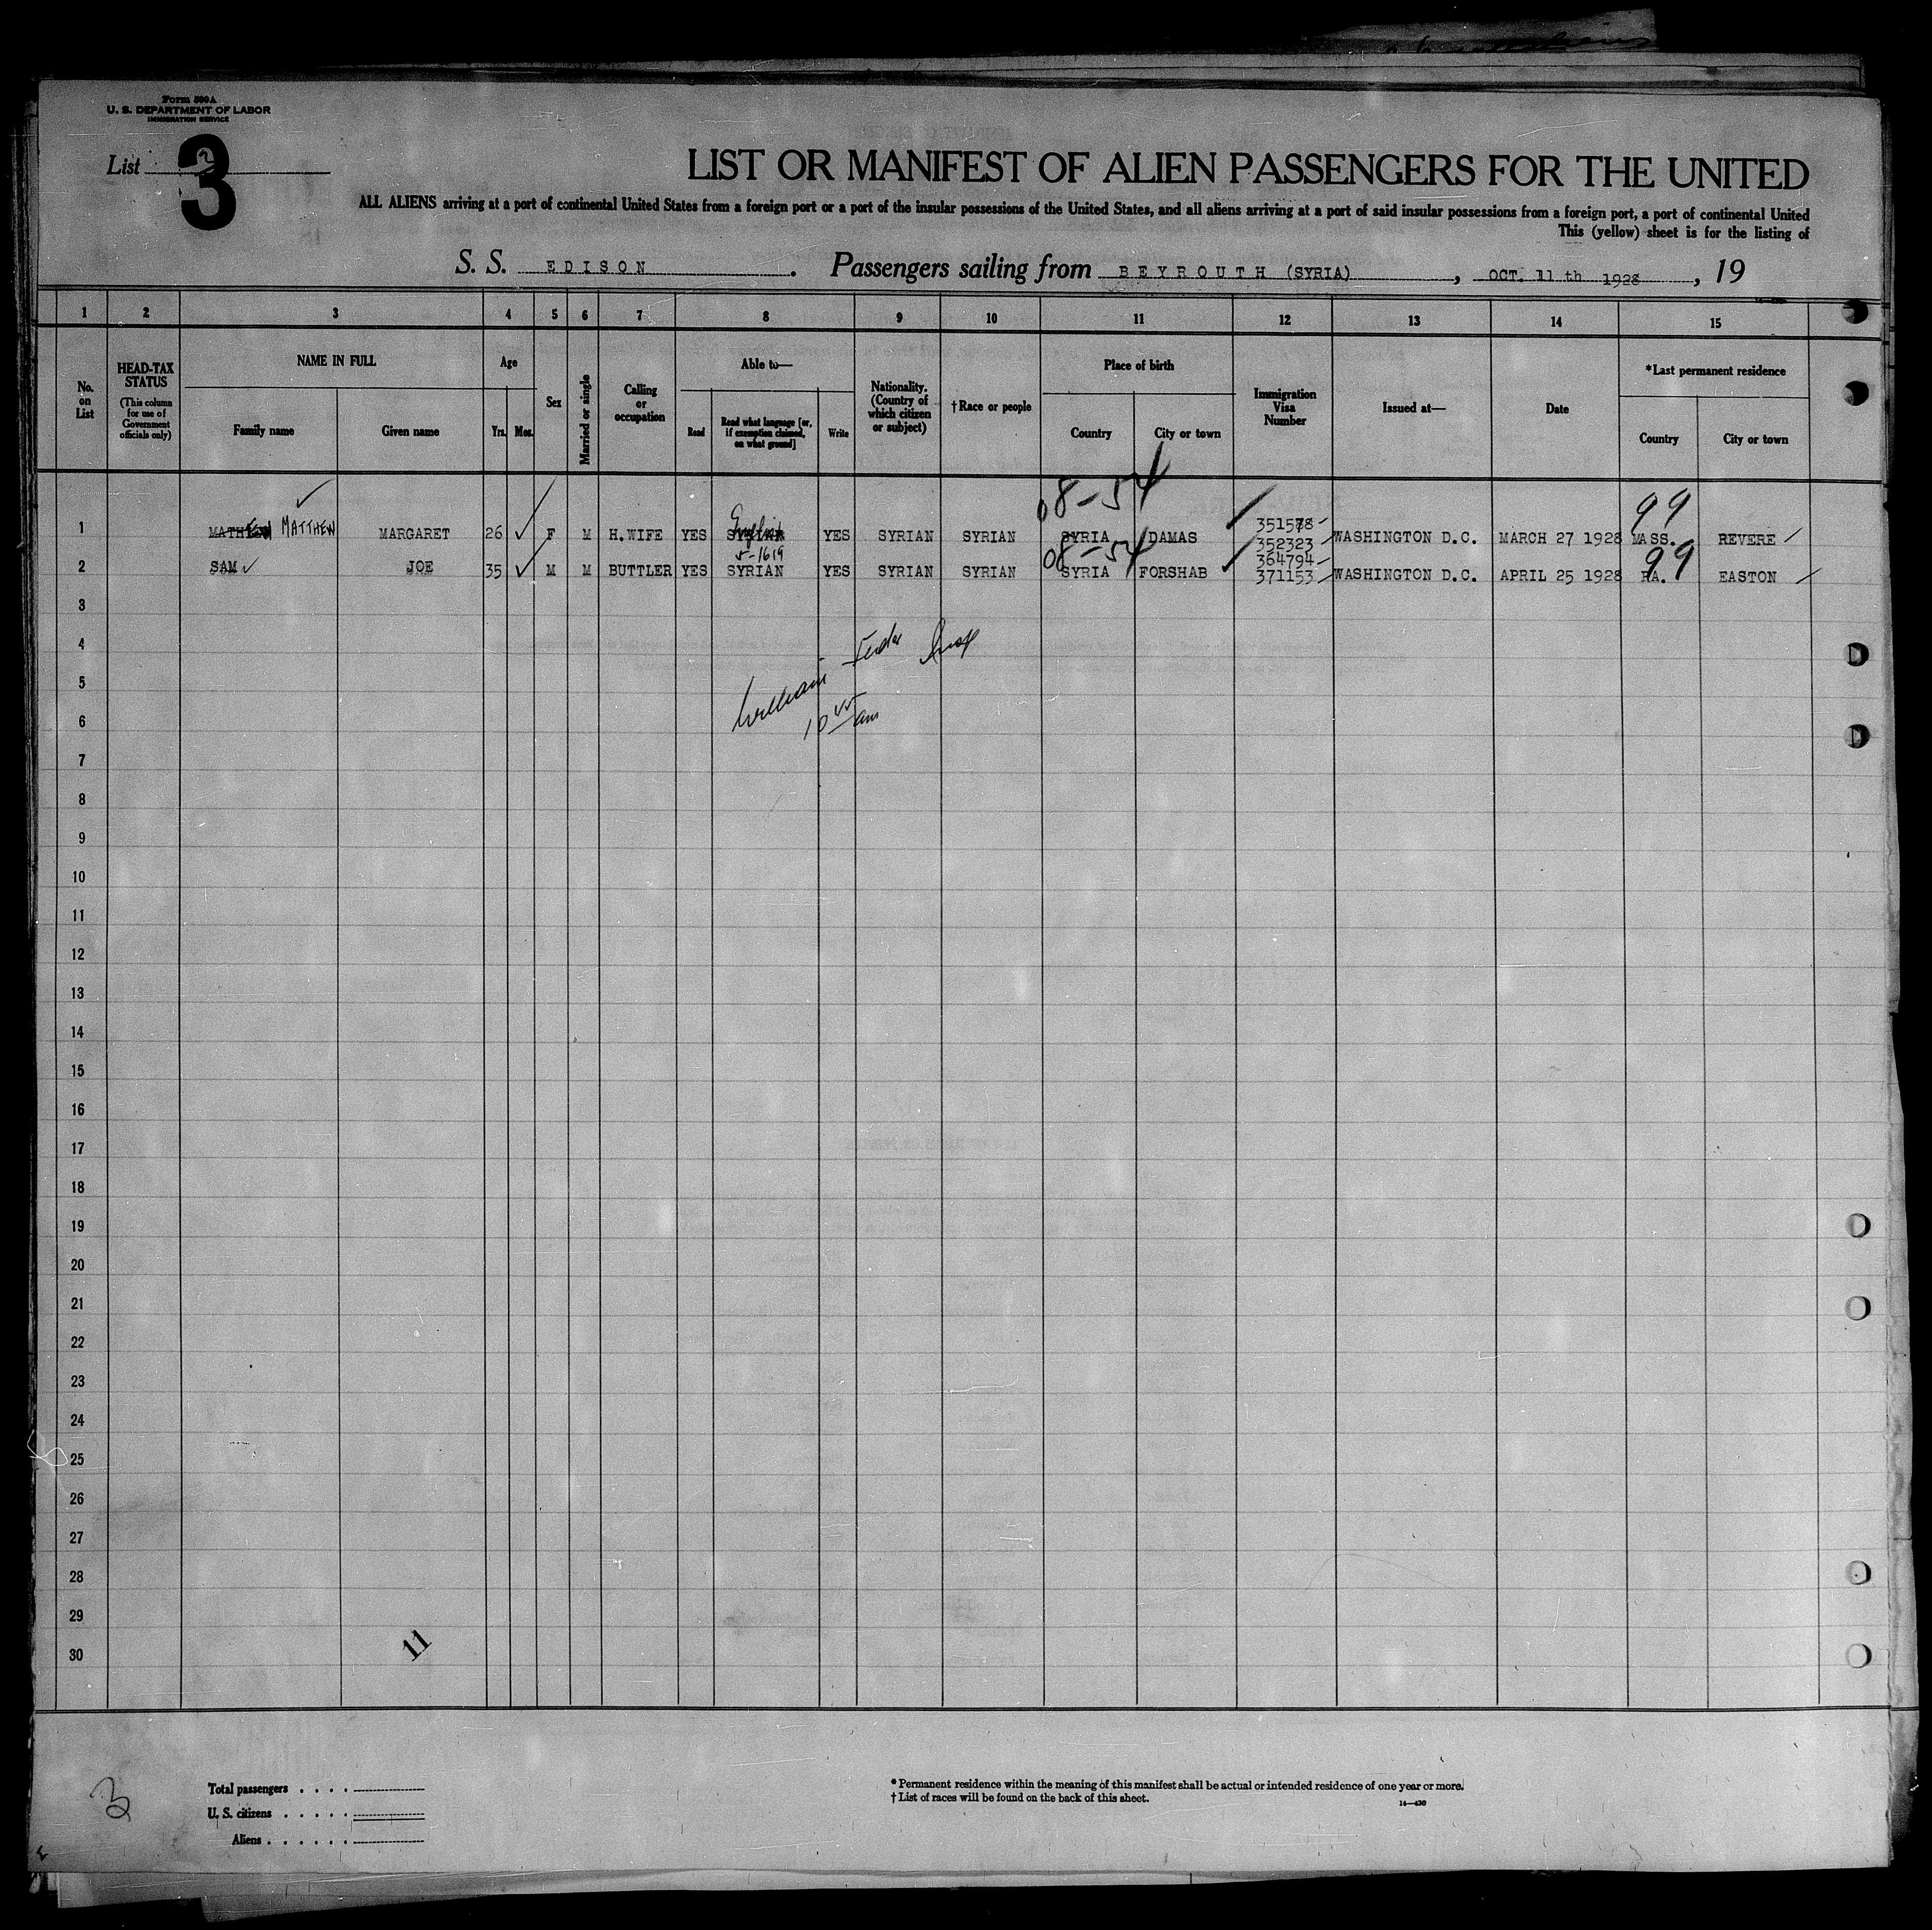 Form 500A
U. S. DEPARTMENT OF LABOR
IMMIGRATION SERVICE
List 3
LIST OR MANIFEST OF ALIEN PASSENGERS FOR THE UNITED
ALL ALIENS arriving at a port of continental United States from a foreign port or a port of the insular possessions of the United States, and all aliens arriving at a port of said insular possessions from a foreign port, a port of continental United
This (yellow) sheet is for the listing of
S. S. EDISON. Passengers sailing from BEYROUTH (SYRIA), OCT. 11 th 1928, 19
1 2 3 4 5 6 7 8 9 10 11 12 13 14 15
No. on List
HEAD-TAX STATUS
(This column for use of Government officials only)
NAME IN FULL
Family name Given name
Age
Yrs. Mos.
Sex
Married or single
Calling or occupation
Able to—
Read Read what language [or, if exemption claimed, on what ground] Write
Nationality. (Country of which citizen or subject)
† Race or people
Place of birth
Country City or town
Immigration Visa Number
Issued at—
Date
*Last permanent residence
Country City or town
08-54
99
1 MATTHEW MARGARET 26 F M H.WIFE YES English YES SYRIAN SYRIAN SYRIA DAMAS 351578 352323 WASHINGTON D.C. MARCH 27 1928 MASS. REVERE
5-1619
08-54
99
2 SAM JOE 35 M M BUTTLER YES SYRIAN YES SYRIAN SYRIAN SYRIA FORSHAB 364794 371153 WASHINGTON D.C. APRIL 25 1928 PA. EASTON
3
4
5
William
6
10 45 am
7
8
9
10
11
12
13
14
15
16
17
18
19
20
21
22
23
24
25
26
27
28
29
30
11
3
Total passengers . . . .
U. S. citizens . . . . .
Aliens . . . . . .
* Permanent residence within the meaning of this manifest shall be actual or intended residence of one year or more.
† List of races will be found on the back of this sheet.
14—430